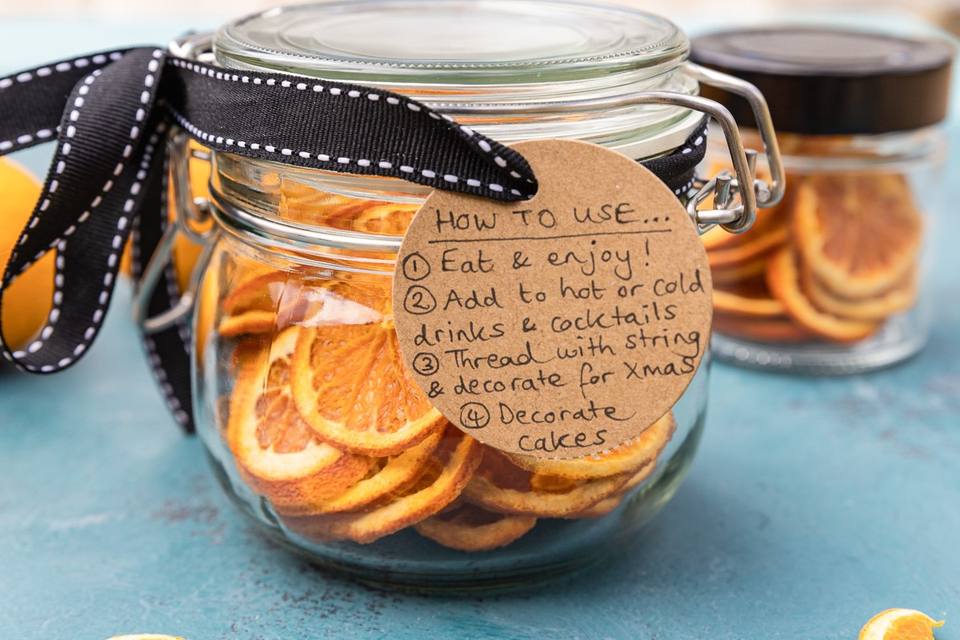 HOW TO USE...
① Eat & enjoy!
② Add to hot or cold
drinks & cocktails
③ Thread with string
& decorate for Xmas
④ Decorate
cakes